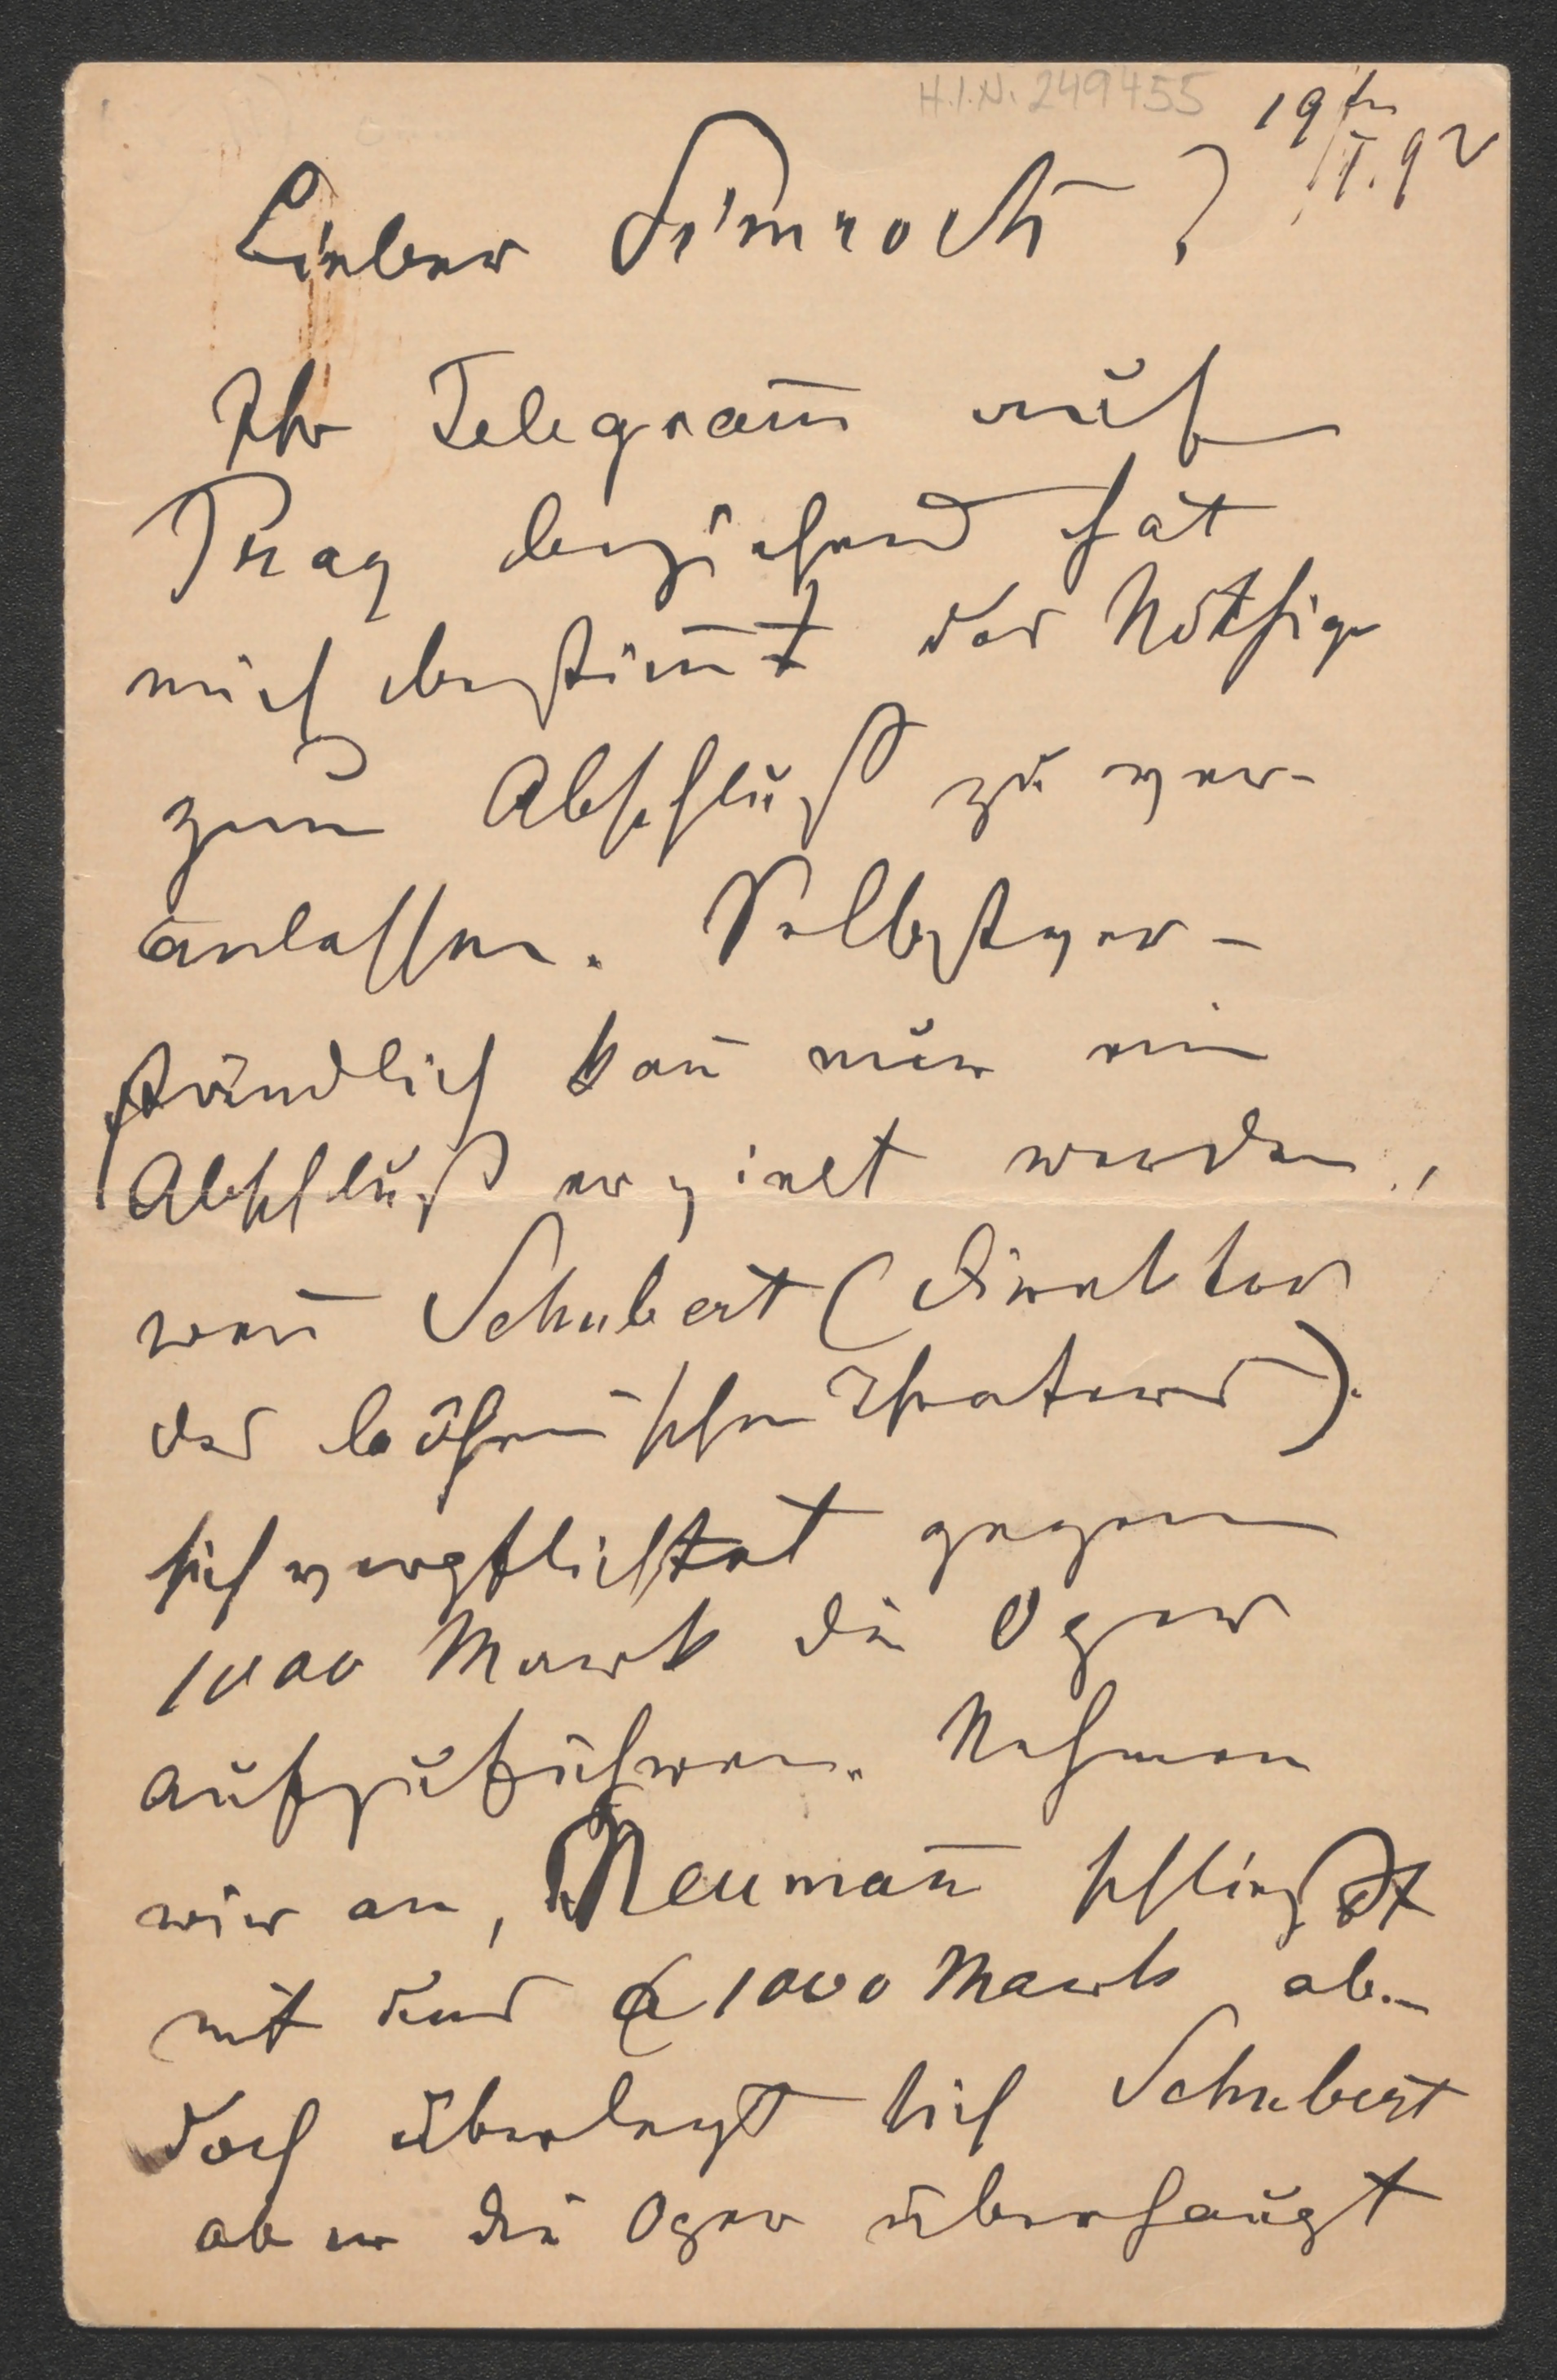 H.I.N. 249455
19tn/I. 92
Lieber Simrock!
Ihr Telegram̅ auf
Prag beziehend hat
mich bestim̅t das Nöthige
zum Abschluß zu ver-
anlassen. Selbstver-
ständlich kan̅ nur ein
Abschluß erzielt werden,
wen̅ Schubert (Direktor
des böhmischen Theaters)
sich verpflichtet gegen
1000 Mark die Oper
aufzuführen. Nehmen
wir an, Neuman̅ schließt
mit uns à 1000 Mark ab.–
doch überlegt sich Schubert
ob er die Oper überhaupt